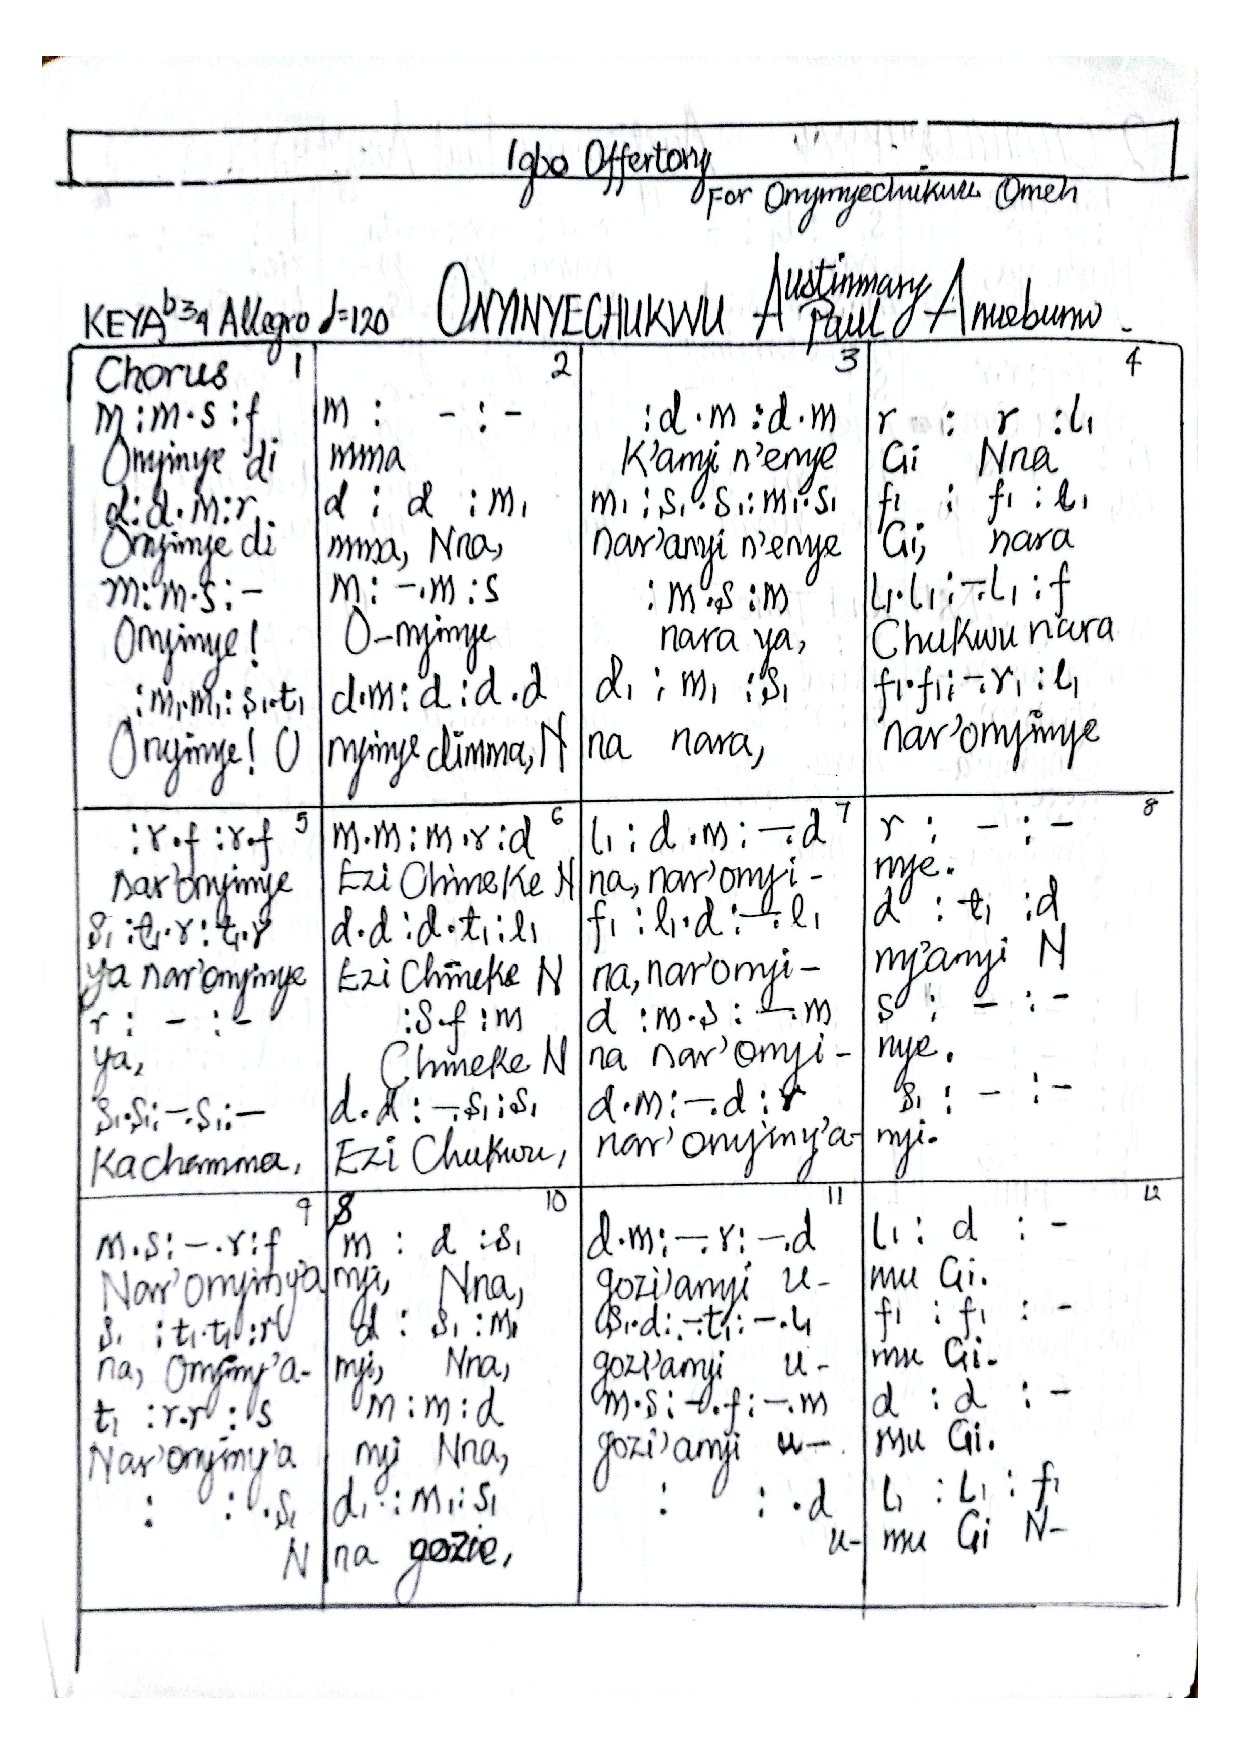 Igbo Offertory
For Onyinyechukwu Omeh
KEY A♭ 3/4 Allegro d=120 ONYINYECHUKWU Austinmary Paul
Chorus 1
m :m.s :f
Onyinye di
d:d.m:r
Onyinye di
m:m.s:-
Onyinye!
:m₁.m₁:s₁.t₁
Onyinye! O
2
m : - : -
mma
d : d : m₁
mma, Nna,
m: -.m :s
O-nyinye
d.m: d :d.d
nyinye dimma, N
3
:d.m :d.m
K'anyi n'enye
m₁ :s₁.s₁:m₁.s₁
nar'anyi n'enye
:m.s :m
nara ya,
d₁ : m₁ :s₁
na nara,
4
r : r :l₁
Gi Nna
f₁ : f₁ : l₁
Gi, nara
l₁.l₁:-.l₁ :f
Chukwu nara
f₁.f₁:-.r₁ :l₁
nar'onyinye
5
:r.f :r.f
nar'onyinye
s₁ :t₁.r :t₁.r
ya nar'onyinye
r : - : -
ya,
s₁.s₁:-.s₁:-
Kachamma,
6
m.m :m.r :d
Ezi Chineke N
d.d :d.t₁:l₁
Ezi Chineke N
:s.f :m
Chineke N
d.d :-.s₁:s₁
Ezi Chukwu,
7
l₁ : d.m :-.d
na, nar'onyi-
f₁ : l₁.d :-.l₁
na, nar'onyi-
d :m.s :-.m
na nar'onyi-
d.m:-.d : r
nar'onyiny'a-
8
r : - : -
nye.
d : t₁ :d
ny'anyi N
s : - : -
nye.
s₁ : - : -
nyi.
9
m.s:-.r:f
Nar'onyiny'a
s₁ :t₁.t₁ :r
na, Onyiny'a-
t₁ :r.r : s
Nar'onyiny'a
: : .s₁
N
10
m : d :s₁
nyi, Nna,
d : s₁ :m₁
nyi, Nna,
m :m :d
nyi Nna,
d₁ :m₁:s₁
na gozie,
11
d.m:-.r:-.d
gozi'anyi u-
s₁.d:-.t₁:-.l₁
gozi'anyi u-
m.s:-.f:-.m
gozi'anyi u-
: : .d
u-
12
l₁ : d : -
mu Gi.
f₁ : f₁ : -
mu Gi.
d : d : -
mu Gi.
l₁ : l₁ : f₁
mu Gi N-